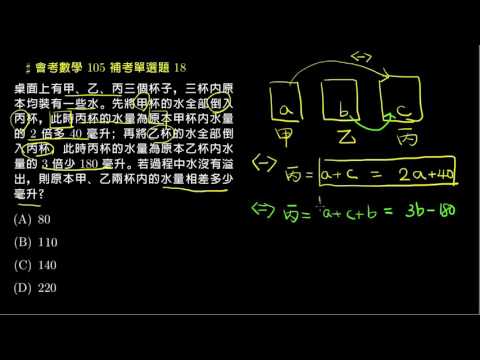 # 會考數學 105 補考單選題 18
桌面上有甲、乙、丙三個杯子，三杯內原
本均裝有一些水。先將甲杯的水全部倒入
丙杯，此時丙杯的水量為原本甲杯內水量
的 2 倍多 40 毫升；再將乙杯的水全部倒
入丙杯，此時丙杯的水量為原本乙杯內水
量的 3 倍少 180 毫升。若過程中水沒有溢
出，則原本甲、乙兩杯內的水量相差多少
毫升？
(A) 80
(B) 110
(C) 140
(D) 220
<一>
a b c
甲 乙 丙
<一> 丙 = a+c = 2a+40
<二> 丙 = a+c+b = 3b-180